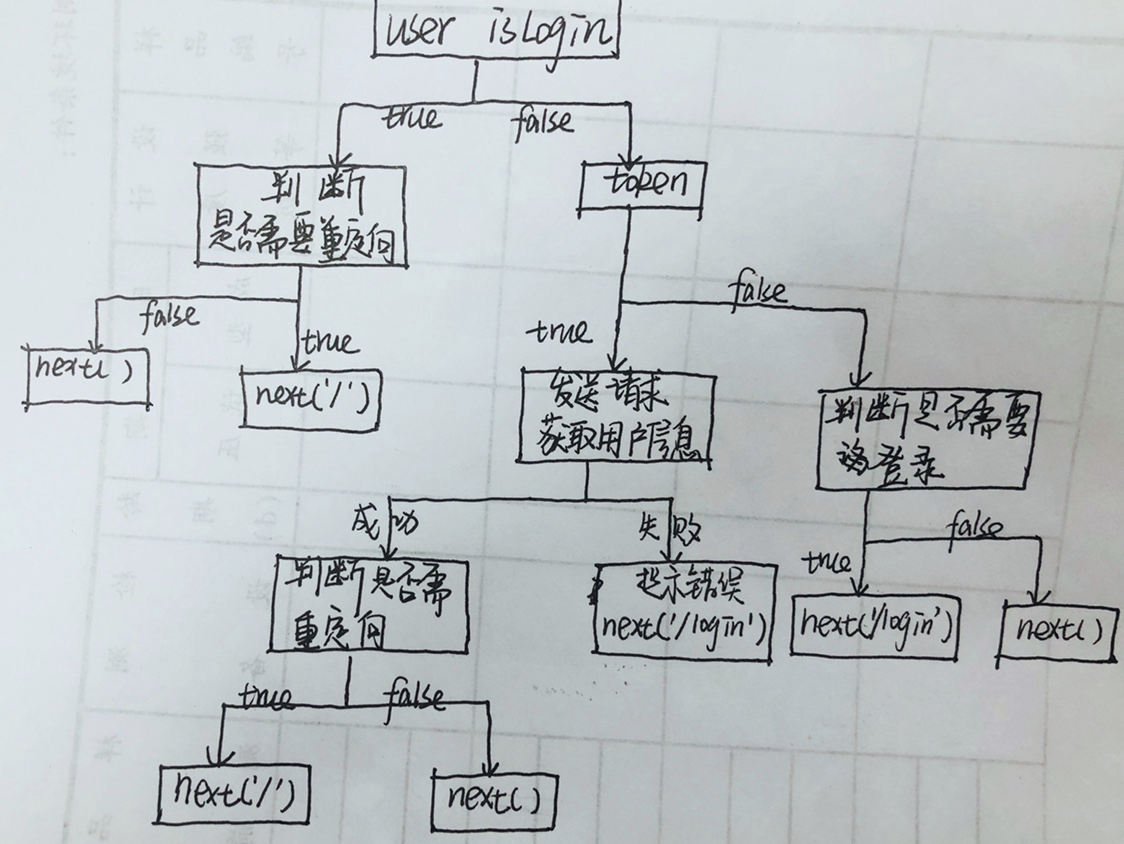 user isLogin
true
false
判断
是否需要重定向
token
false
true
next()
next('/')
true
false
发送请求
获取用户信息
判断是否需要
登录
成功
失败
判断是否需
重定向
提示错误
next('/login')
true
false
next('/login')
next()
true
false
next('/')
next()